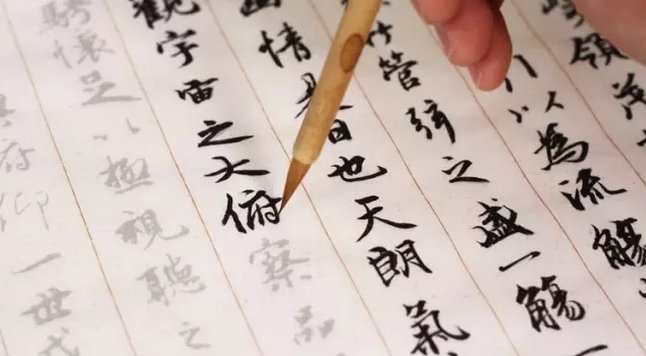 峻領茂
以為流觴
竹管弦之盛一觴
幽情是日也天朗氣
觀宇宙之大俯察品
騁懷足以極視聽之
俯仰一世